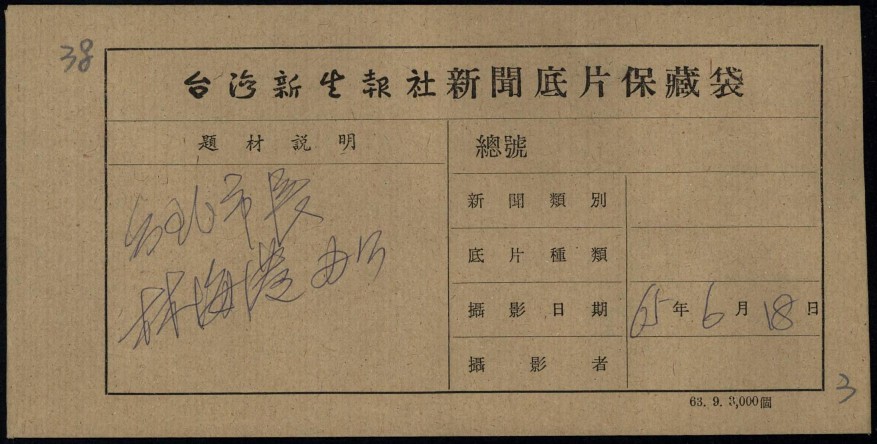 38
台灣新生報社新聞底片保藏袋
題材說明
總號
台北市長
林洋港办公
新聞類別
底片種類
攝影日期 65年6月18日
攝影者
63. 9. 3,000個
3